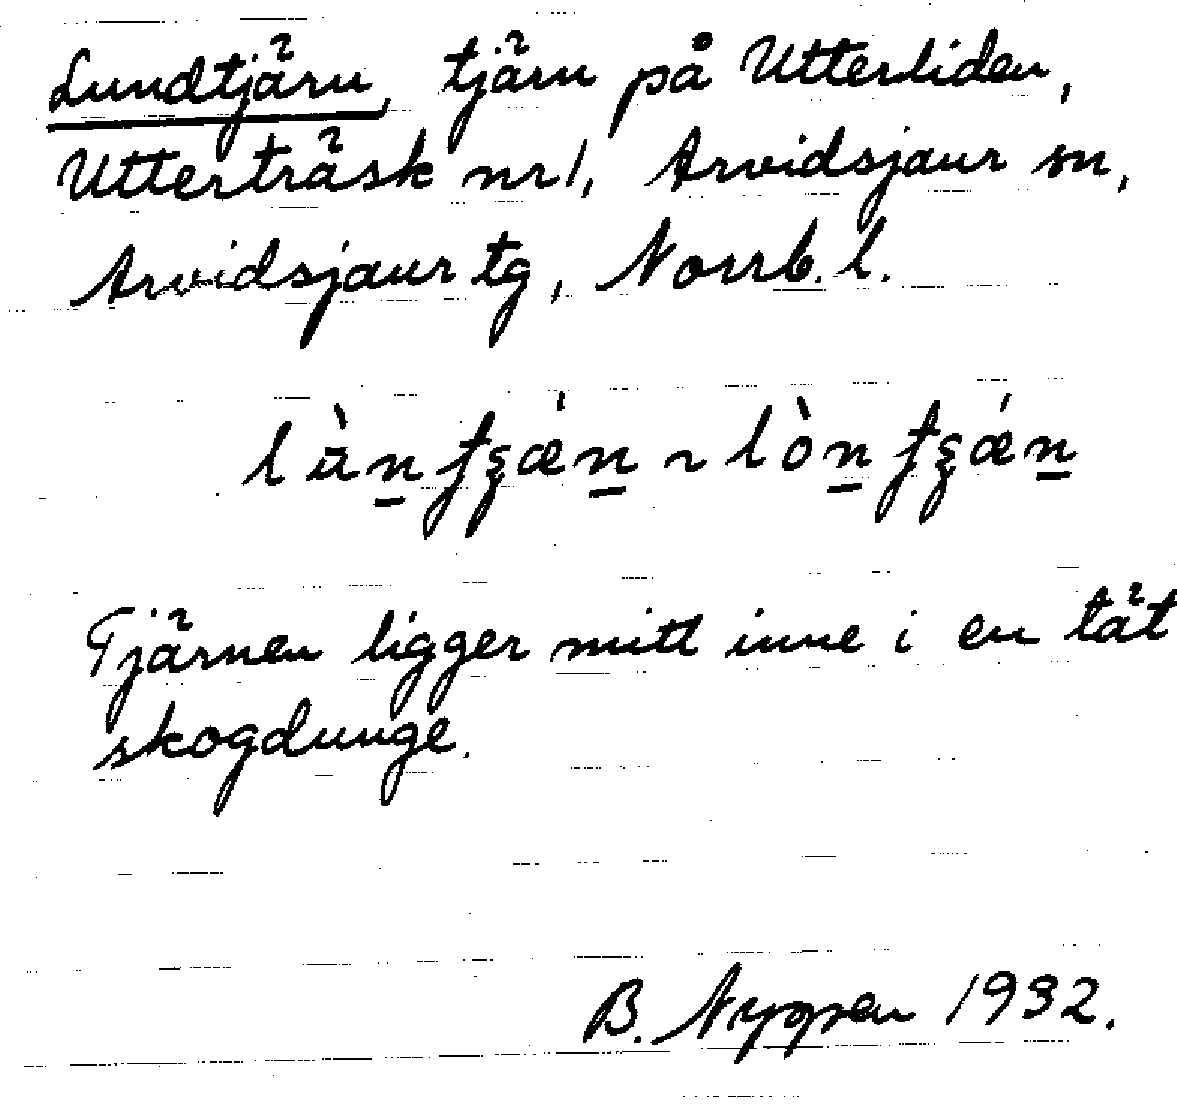 Lundtjärn, tjärn på Utterliden,
Utterträsk nr 1, Arvidsjaur sn,
Arvidsjaur tg, Norrb. l.
Tjärnen ligger mitt inne i en tät
skogdunge.
B. 1932.